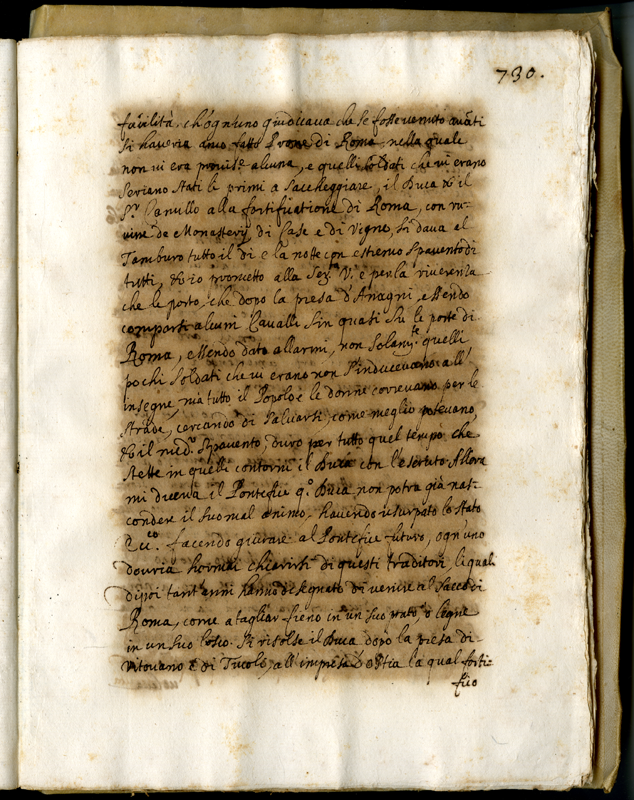 730.
facilità, ch'ognuno giudicava che se fosse venuto avāti
si haveria anco fatto Prone di Roma, nella quale
non vi era provis.e alcuna, e quelli soldati che vi erano
seriano stati li primi a saccheggiare, il Duca & il
S.r Camillo alla fortificatione di Roma, con ru-
vine de Monasterij di Case e di Vigne, si dava al
Tamburo tutto il dì e la notte con estremo spavento di
tutti, & io prometto alla Ser.tà V.ª e per la riverenza
che le porto, che dopo la presa d'Anagni, essendo
comparsi alcuni Cavalli sin quasi su le porte di
Roma, essendo dato all'armi, non solam.te quelli
pochi soldati che vi erano non s'inducevano all'
insegne, ma tutto il Popolo e le donne correvano per le
strade, cercando di salvarsi, come meglio potevano,
& il med.o spavento durò per tutto quel tempo che
stette in quelli contorni il Duca con l'essercito. Allora
mi diceva il Pontefice q.o Duca non potrà già nas-
condere il suo mal animo, havendo usurpato lo stato
Ecc.co facendo giurare al Pontefice futuro, ogn'uno
douria hormai chiarirsi di questi traditori, li quali
dipoi tant'anni hanno disegnato di venire al sacco di
Roma, come a tagliar fieno in un suo prato, o legne
in un suo bosco. Si risolse il Duca dopo la presa di
Vicovaro e di Tivoli, all'impresa d'Ostia la qual forti-
fico